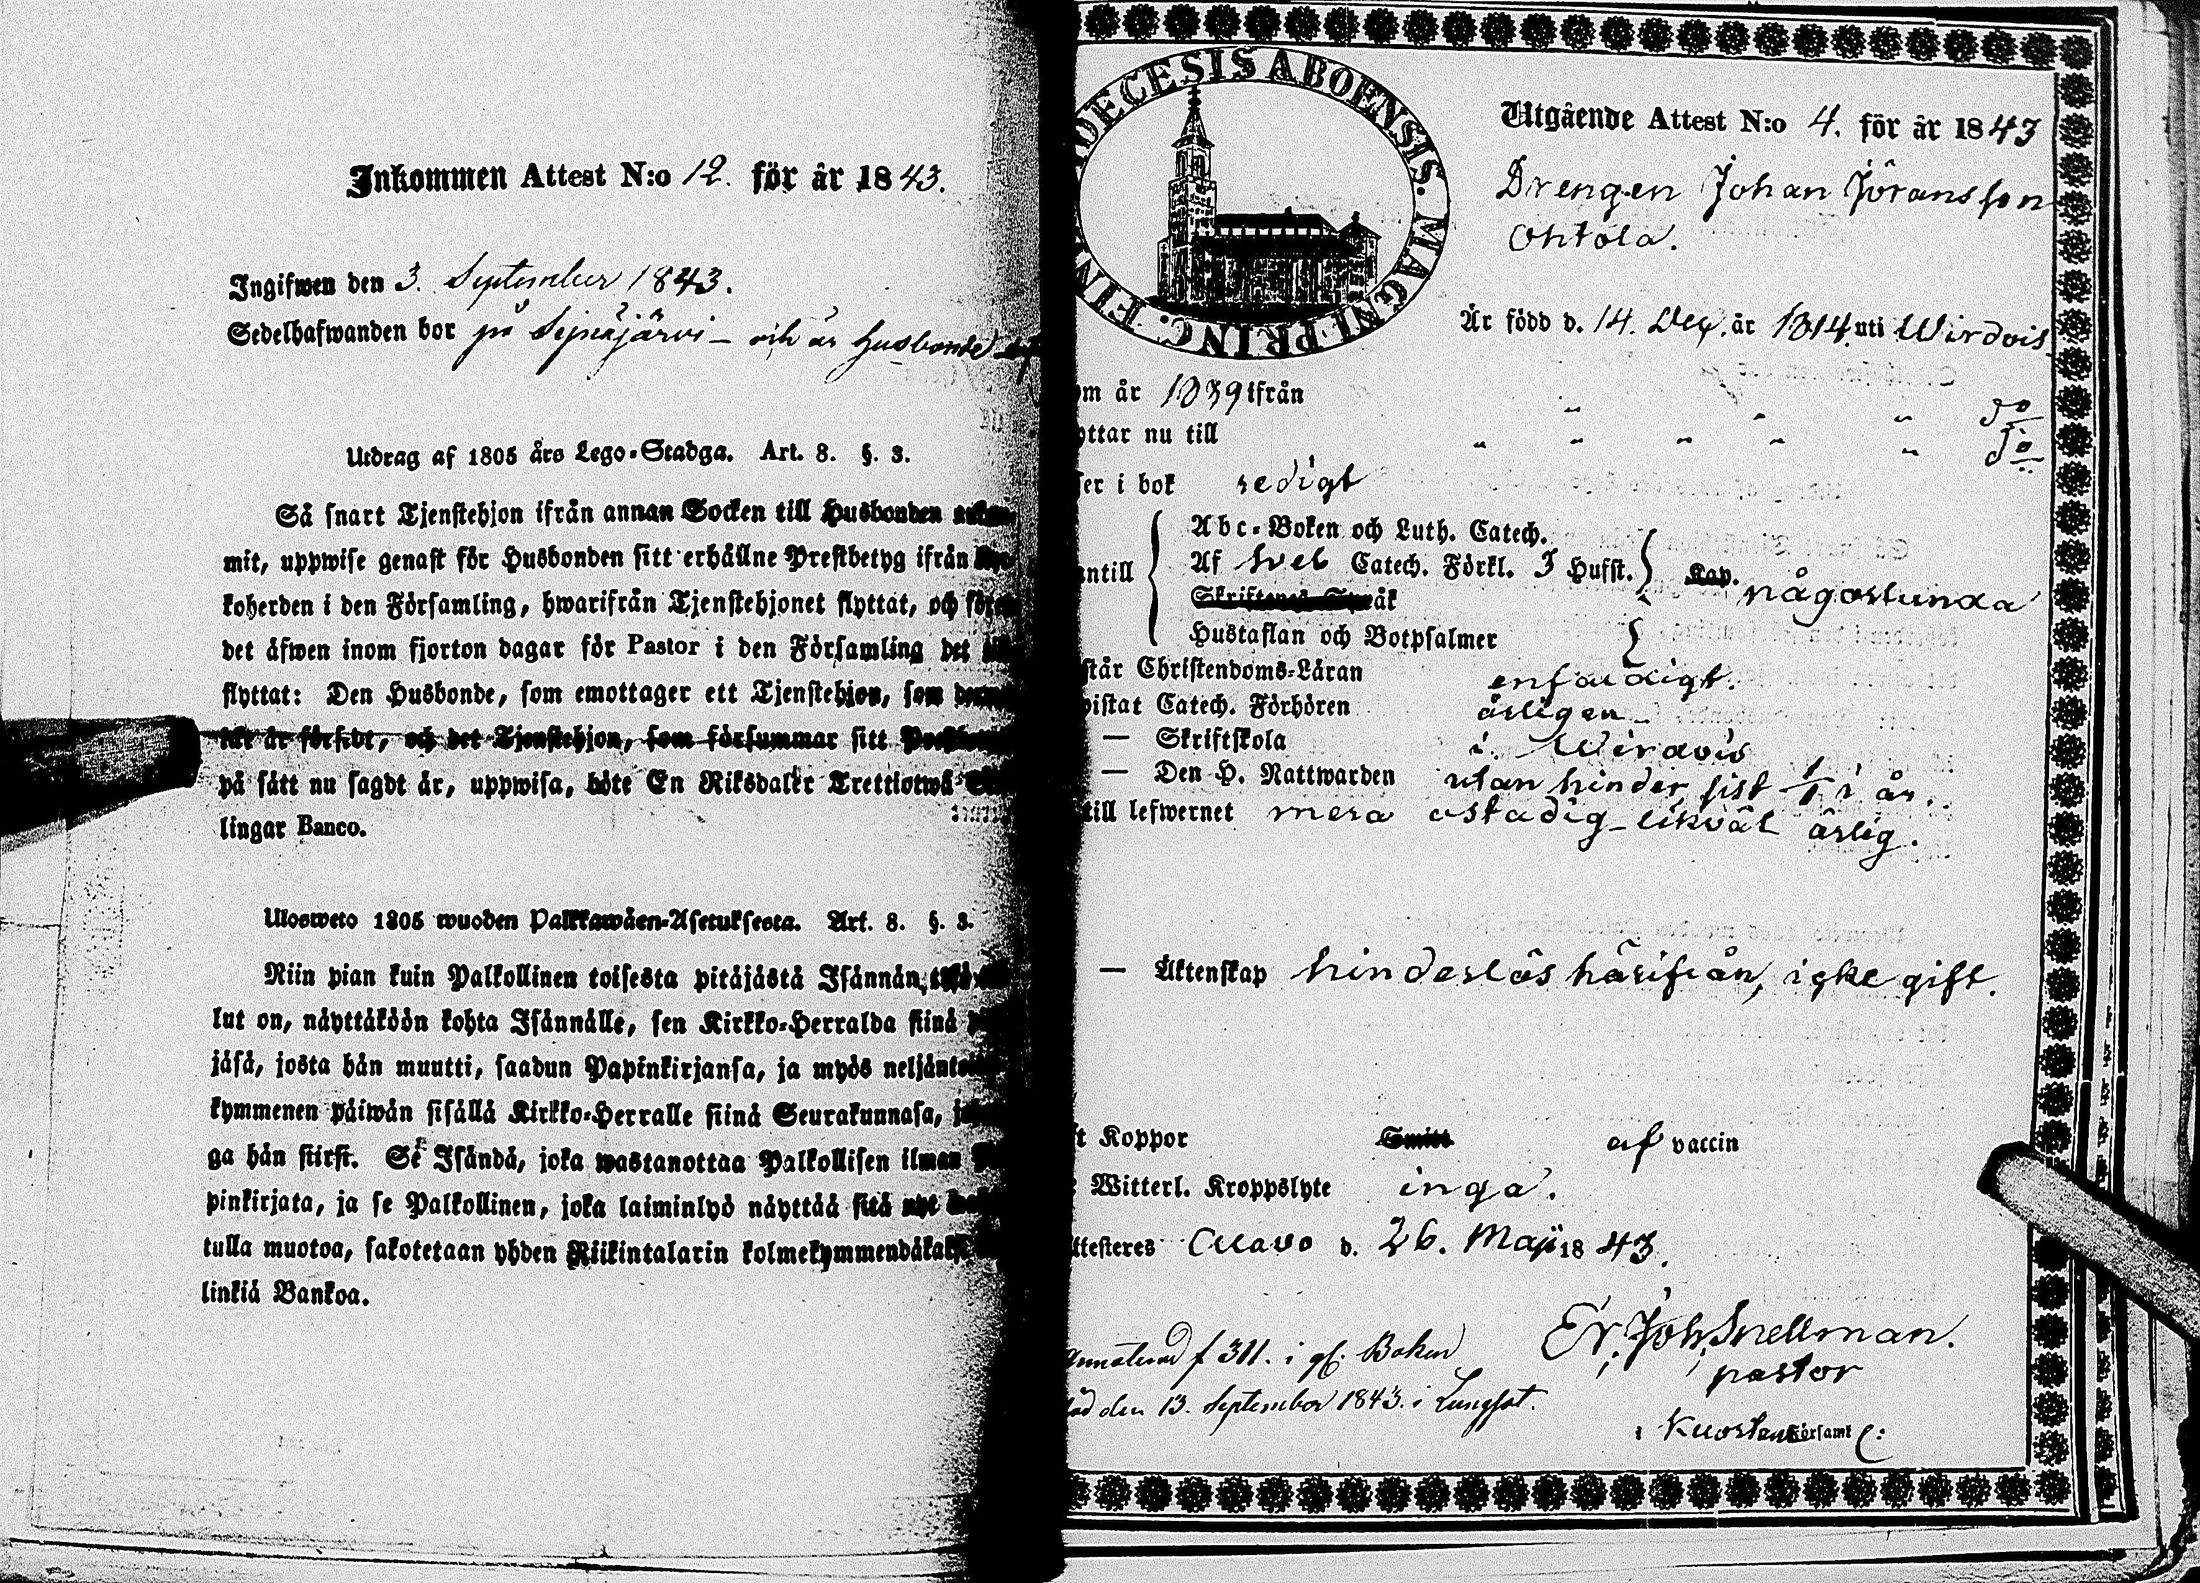 Inkommen Attest N:o 12. för år 1843.
Ingifwen den 3. September 1843.
Sedelhafwanden bor på Sejnäjärvi – och är Husbonde
Utdrag af 1805 års Lego-Stadga. Art. 8. §. 3.
Så snart Tjenstehjon ifrån annan Socken till Husbonden ankom-
mit, uppwise genast för Husbonden sitt erhållne Prestbetyg ifrån
koherden i den Församling, hwarifrån Tjenstehjonet flyttat, och före
det äfwen inom fjorton dagar för Pastor i den Församling det
flyttat: Den Husbonde, som emottager ett Tjenstehjon, som
och det Tjenstehjon, som försummar sitt
på sätt nu sagdt är, uppwisa, böte En Riksdaler Trettiotwå
lingar Banco.
Ulosweto 1805 wuoden Palkkawäen-Asetuksesta. Art. 8. §. 3.
Niin pian kuin Palkollinen toisesta pitäjästä Isännän
lut on, näyttäköön kohta Isännälle, sen Kirkko-Herralda siinä
jäsä, josta hän muutti, saadun Papinkirjansa, ja myös neljänto
kymmenen päiwän sisällä Kirkko-Herralle siinä Seurakunnasa,
ga hän siirst. Se Isändä, joka wastanottaa Palkollisen ilman
pinkirjata, ja se Palkollinen, joka laiminlyö näyttää sitä nyt
tulla muotoa, sakotetaan yhden Riikintalarin kolmekymmendäkaksi
linkiä Bankoa.
DECESIS ABOENSIS. MAGNI PRINC. FIN
Utgående Attest N:o 4. för år 1843
Drengen Johan Jöransson
Ohtola.
Är född d. 14. Dec. år 1814. uti Wirdois
om år 1839 ifrån " " " do
ottar nu till " " " " " do
ser i bok redigt
antill
Abc-Boken och Luth. Catech.
Af Sveb Catech. Förkl. 3 Hufst. Kap. någorlunda
Skriftenes Språk
Hustaflan och Botpsalmer
står Christendoms-Läran enfaldigt.
vistat Catech. Förhören årligen
— Skriftskola i Wirdois
— Den H. Nattwarden utan hinder, sist 1/1 i år.
till lefwernet mera ostadig – likväl ärlig.
— Äktenskap hinderlös härifrån, icke gift.
ft Koppor Smitt af vaccin
Witterl. Kroppslyte inga.
ttesteres Alavo d. 26. Maji 1843.
Er. Joh. Snellman.
pastor
i Kuortane Församl:
Annoterad f 311. i gl. Boken
död den 13. September 1843. i Lungsot.